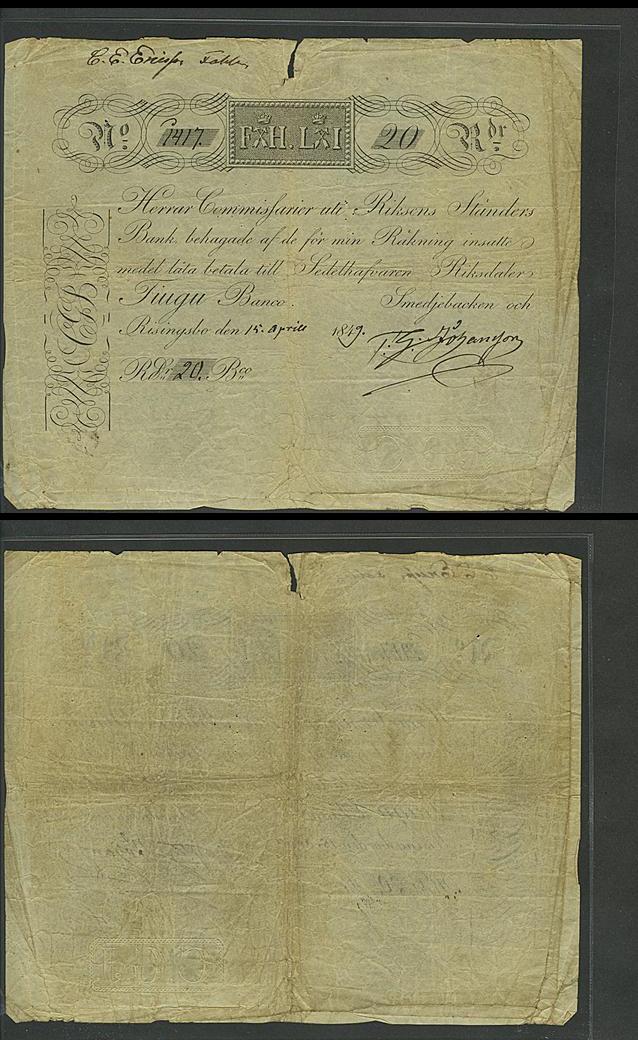 C. E. Ericsson
Nº 1417. F H. L I 20 R dr
Herrar Commissarier uti Riksens Ständers
Bank, behagade af de för min Räkning insatte
medel låta betala till Sedelhafvaren Riksdaler
Tjugu Banco. Smedjebacken och
Risingsbo den 15. April 1849.
T. G. Johansson
RDr 20. Bco